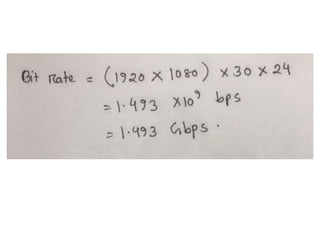 Bit rate = (1920 × 1080) × 30 × 24
= 1.493 × 10⁹ bps
= 1.493 Gbps.